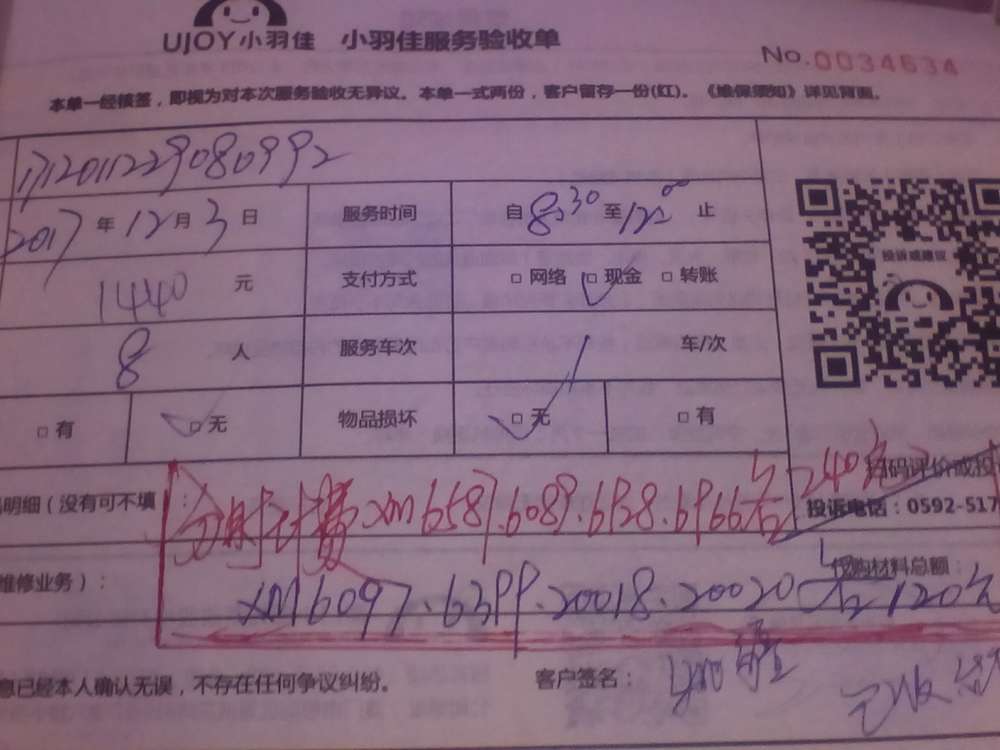 UJOY小羽佳 小羽佳服务验收单
No.0034634
本单一经核签，即视为对本次服务验收无异议。本单一式两份，客户留存一份(红)。《维保须知》详见背面。
171201122908099２
2017 年 12 月 3 日 服务时间 自 8:30 至 12:00 止
1440 元 支付方式 □ 网络 □ 现金 □ 转账
投诉或建议
8 人 服务车次 / 车/次
□ 有 □ 无 物品损坏 □ 无 □ 有
扫码评价或投
明细（没有可不填）：分时计费 xm6587.6089.6928.6966各240元
投诉电话：0592-517
维修业务）： 代购材料总额：
xm6097.6399.20018.20020各120元
息已经本人确认无误，不存在任何争议纠纷。 客户签名：
已收